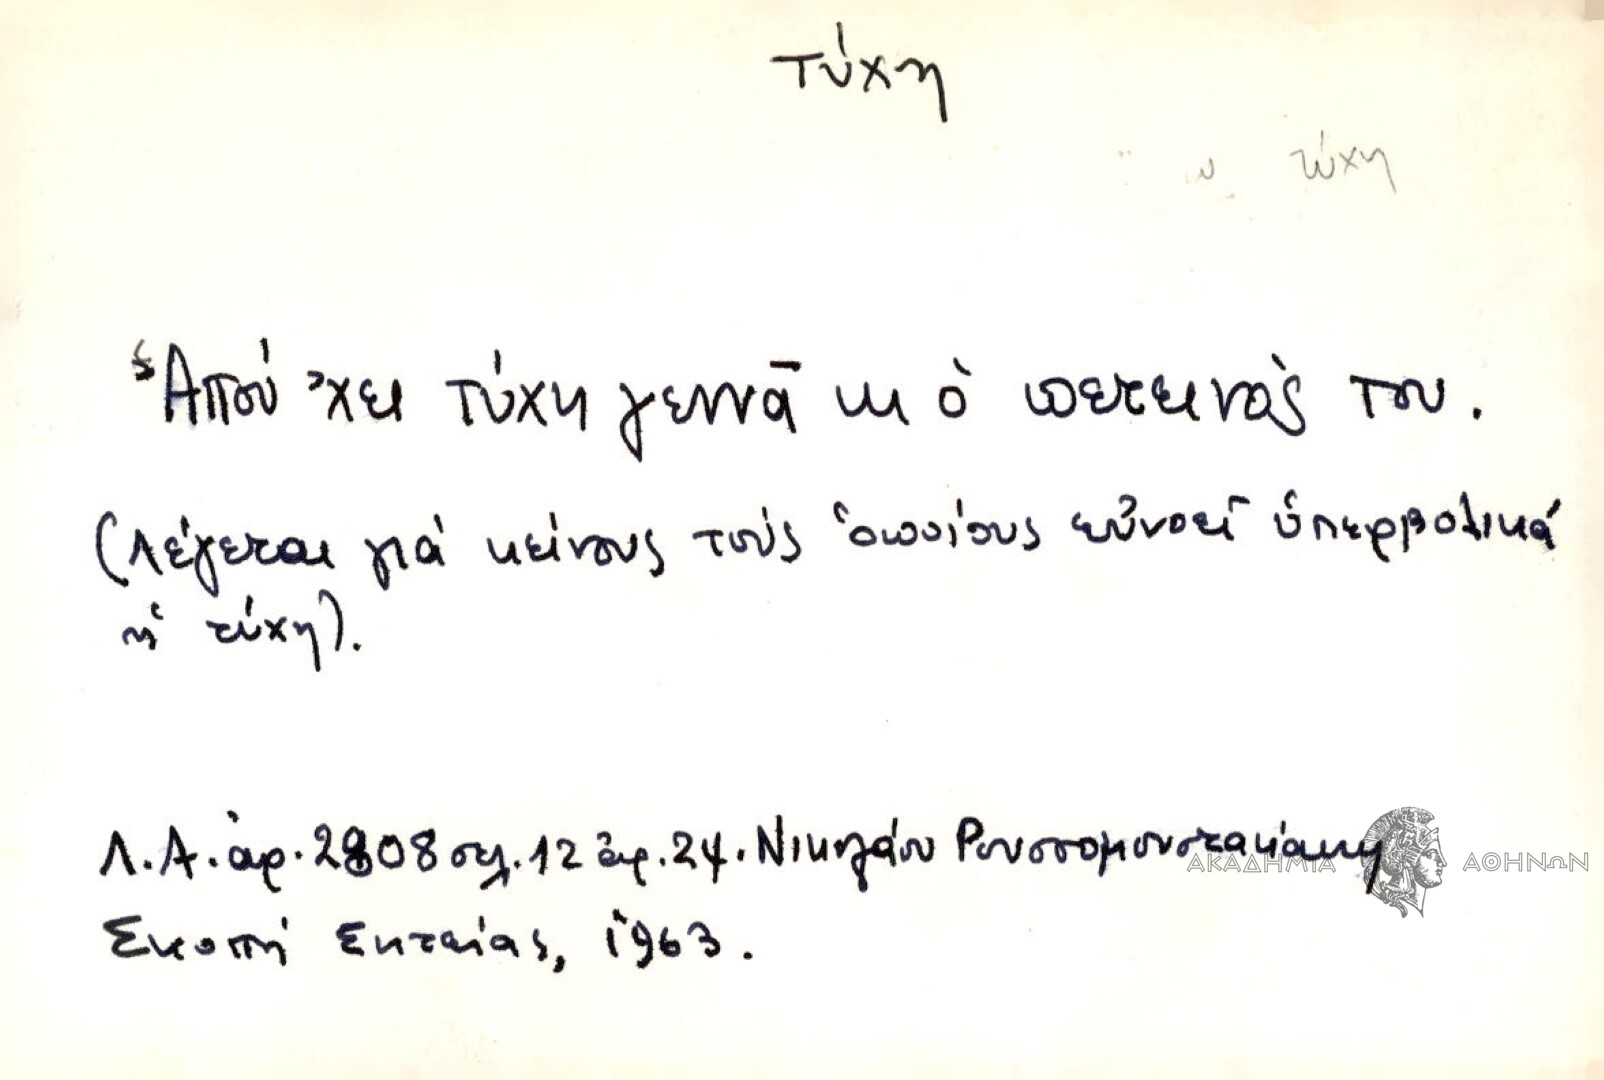 τύχη
τύχη
Ἀπού 'χει τύχη γεννᾶ κι ὁ πετεινὸς του.
(Λέγεται γιά κείνους τούς ὁποίους εὐνοεῖ ὑπερβολικά
ἡ τύχη).
Λ.Α. ἀρ. 2808 σελ. 12 ἀρ. 24. Νικολάου Ρουσσομουστακάκη
ΑΚΑΔΗΜΙΑ ΑΘΗΝΩΝ
Σκοπή Σητείας, 1963.